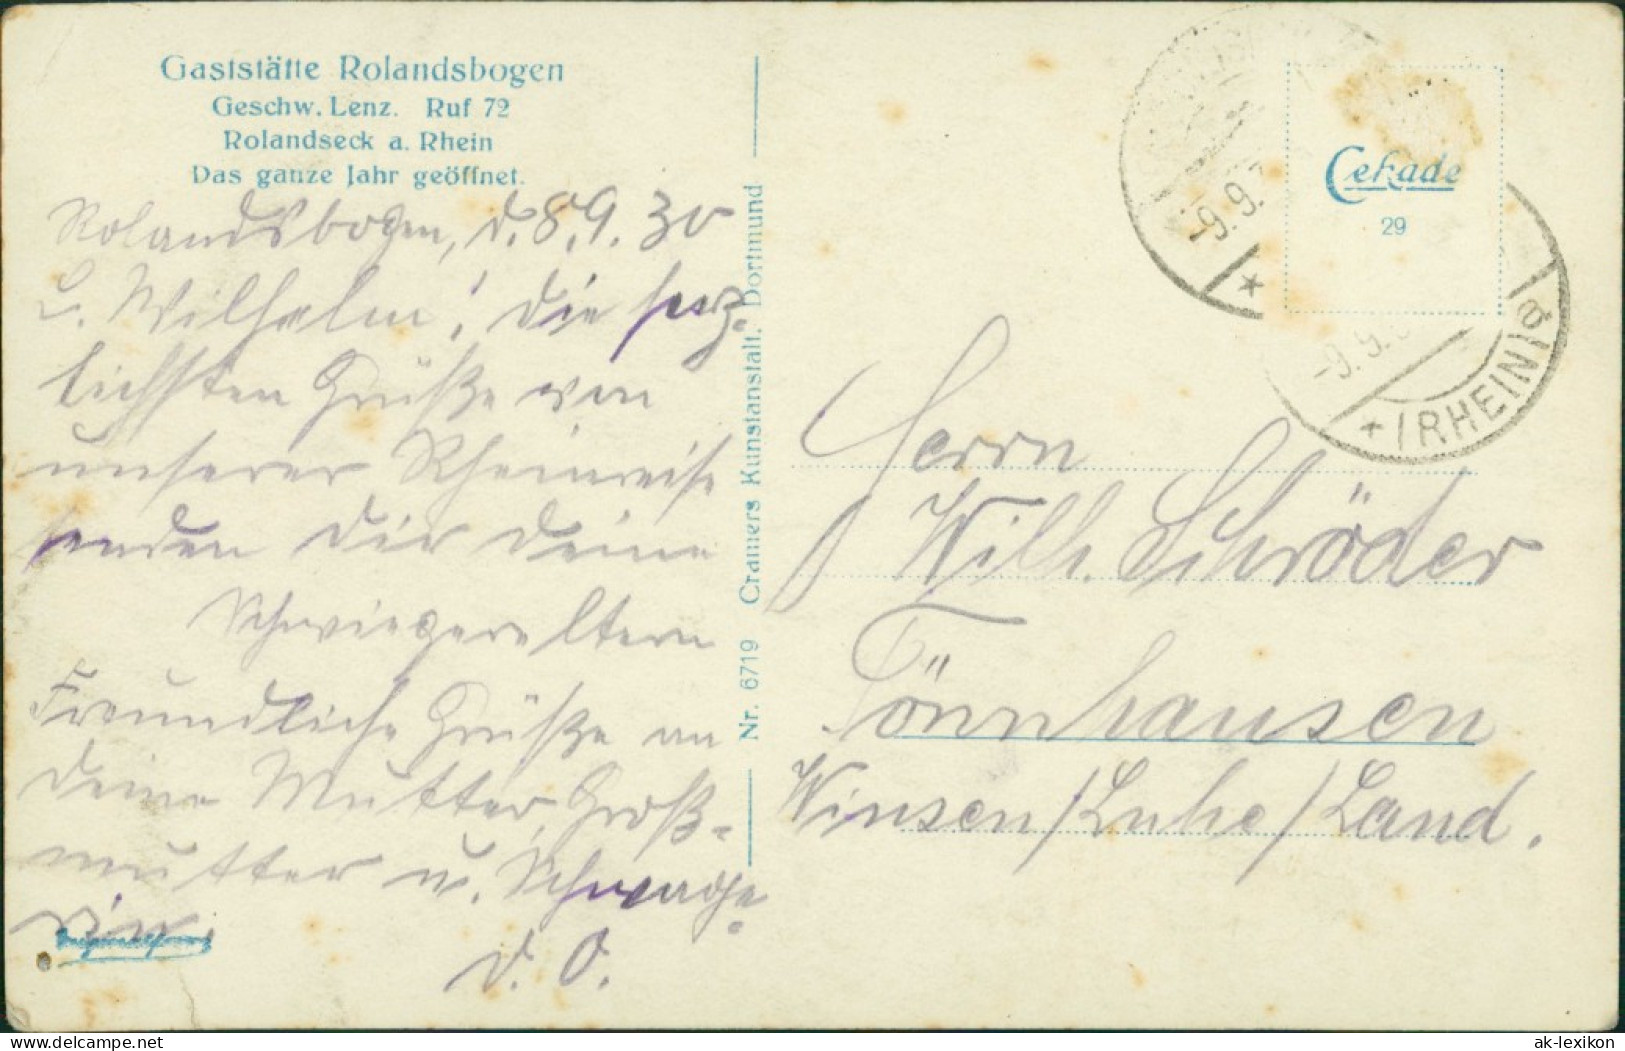 Gaststätte Rolandsbogen
Geschw. Lenz. Ruf 72
Rolandseck a. Rhein
Das ganze Jahr geöffnet.
Rolandsbogen, d. 8.9.30
L. Wilhelm! Die herz-
lichsten Grüße von
unserer Rheinreise
senden Dir deine
Schwiegereltern
Freundliche Grüße an
deine Mutter, Groß-
mutter u. Schwäge-
rin.
d. O.
Originalfoto
Nr. 6719 Cramers Kunstanstalt. Dortmund
Cekade
29
-9.9.
*
-9.9.3
* (RHEIN) a
Herrn
Wilh. Schröder
Tönnhausen
Winsen/Luhe/Land.
www.delcampe.net
ak-lexikon